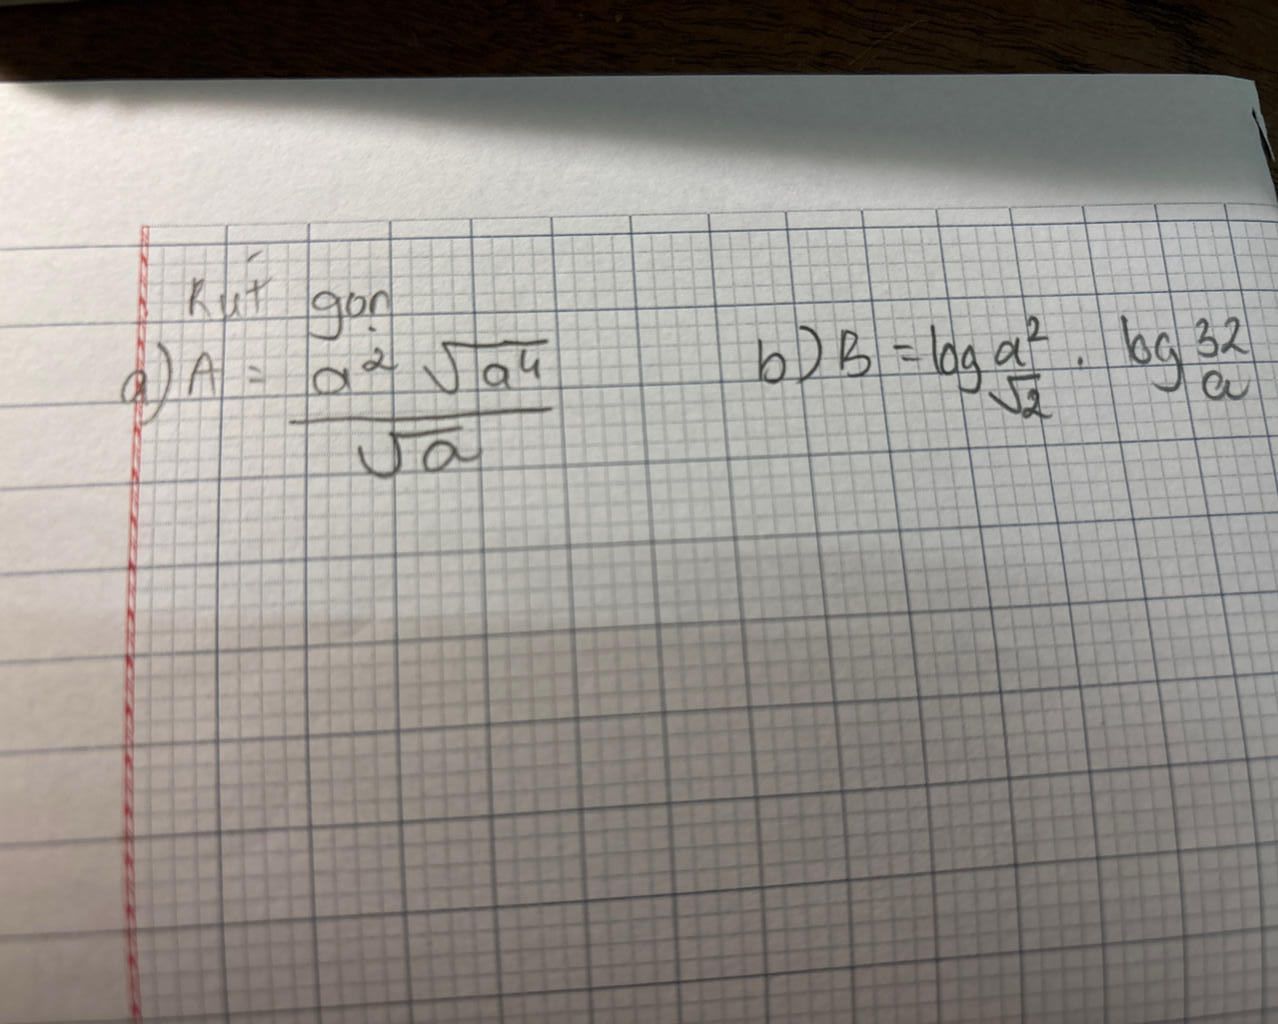 Rút gọn
a) A = a² √a⁴ / √a
b) B = log_√2 a² . log_a 32